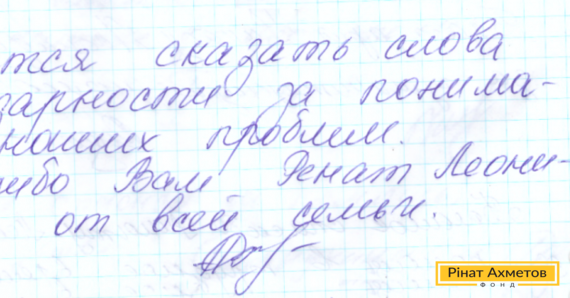 тся сказать слова
дарности за понима-
наших проблем.
ибо Вам Ренат Леони-
от всей семьи.
Рінат Ахметов
ФОНД